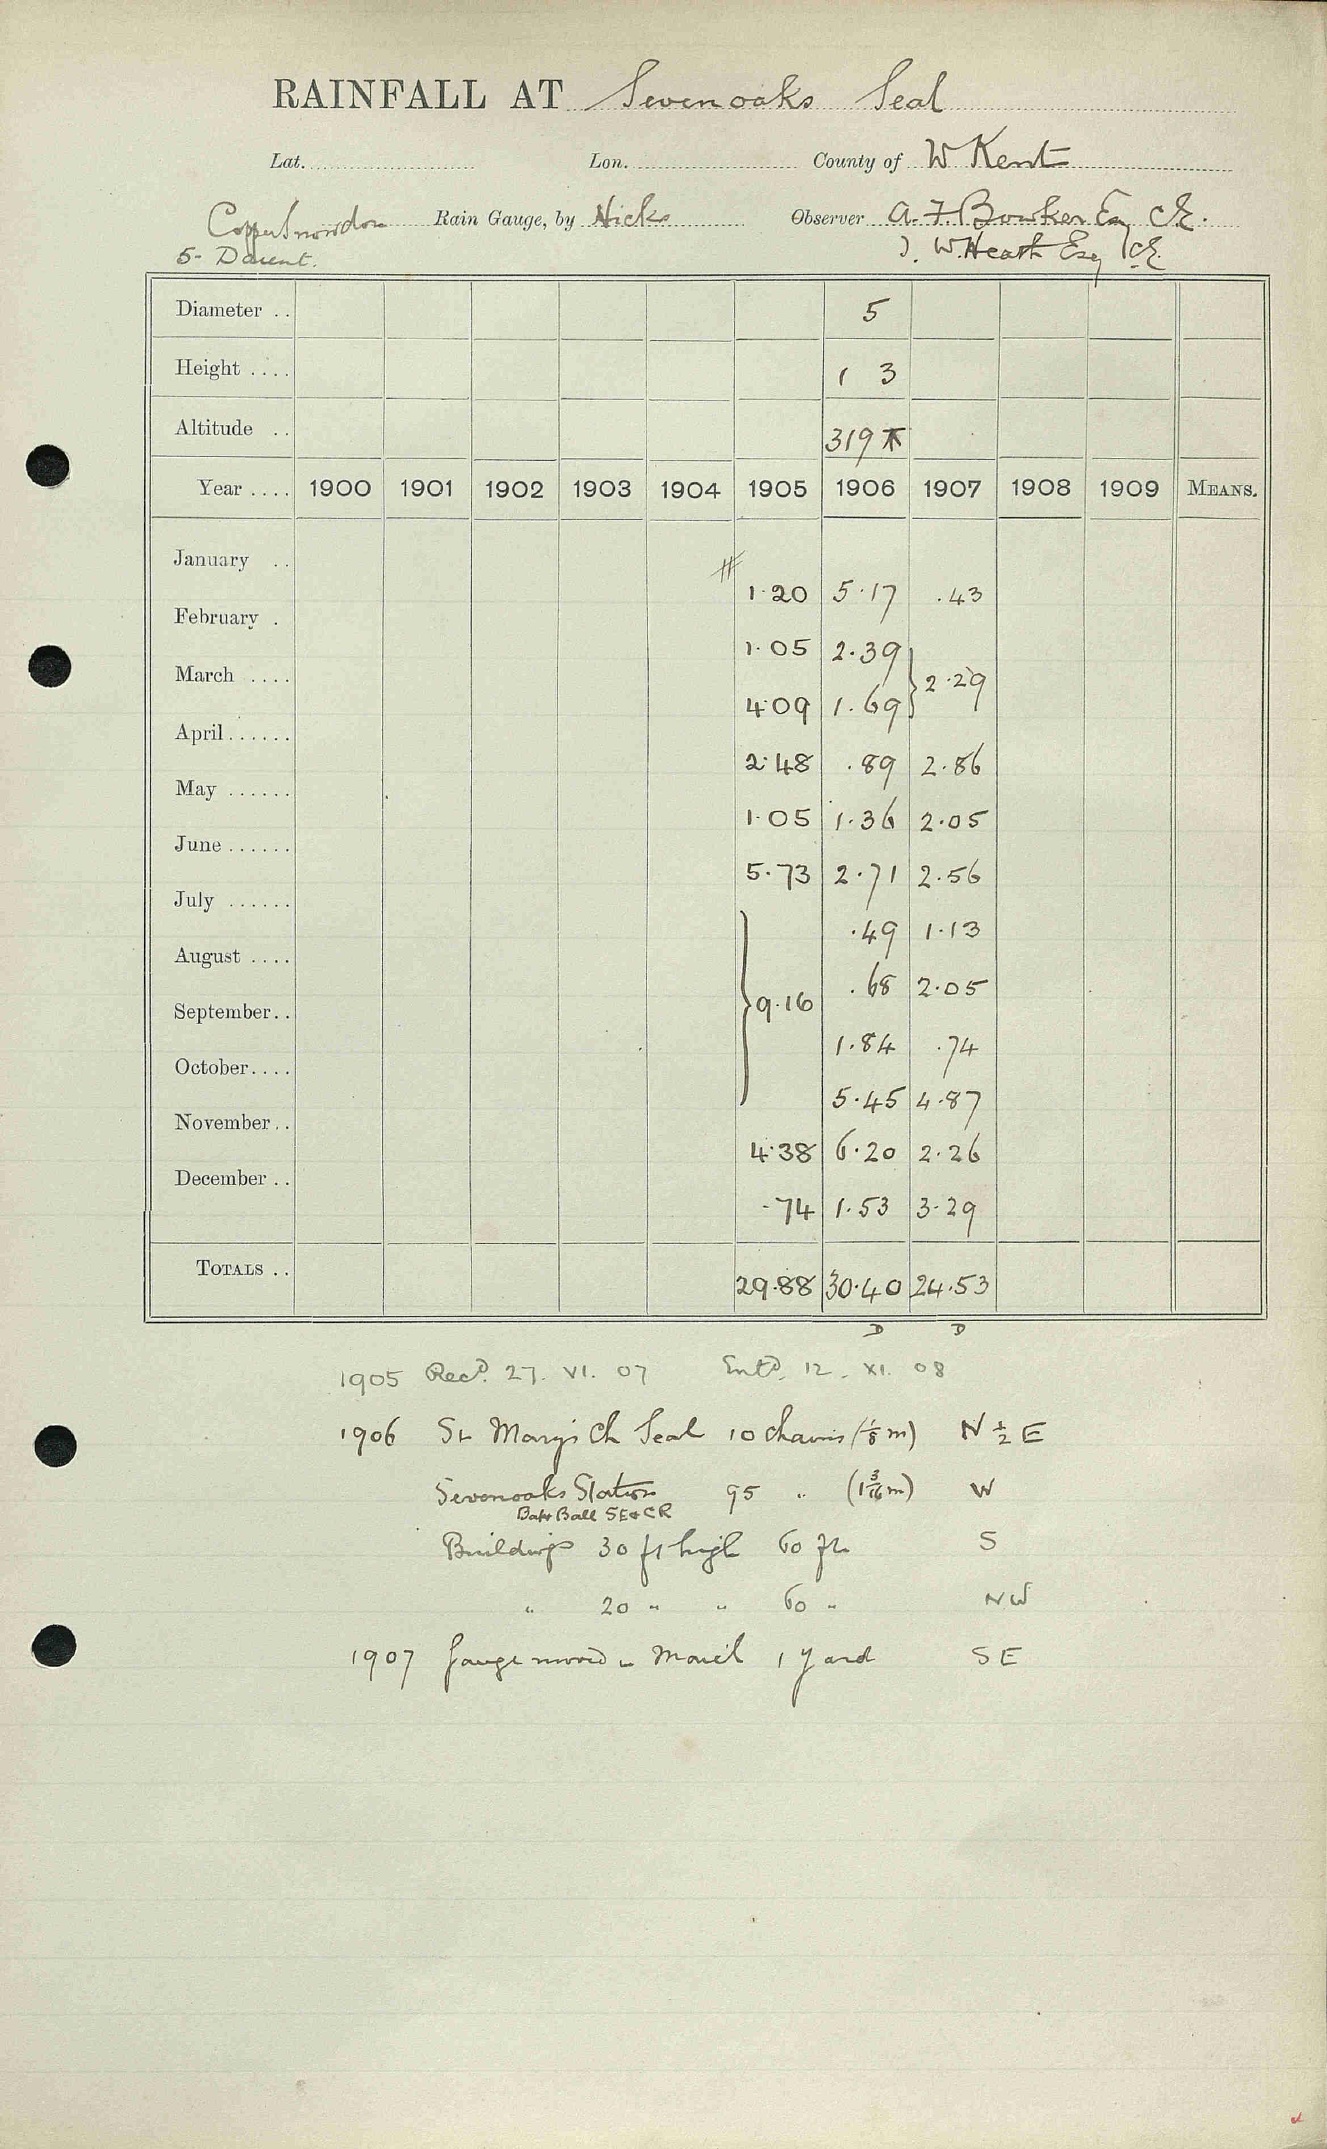 RAINFALL AT Sevenoaks Seal
Lat. Lon. County of W Kent
Copper Snowdon Rain Gauge, by Hicks Observer A. F. Bowker Esq CE.
5- Darent. J. W. Heath Esq CE.
Diameter .. 5
Height .... 1 3
Altitude .. 319
Year .... 1900 1901 1902 1903 1904 1905 1906 1907 1908 1909 MEANS.
January .. # 1.20 5.17 .43
February . 1.05 2.39
March .... 4.09 1.69 } 2.29
April ...... 2.48 .89 2.86
May ...... 1.05 1.36 2.05
June ...... 5.73 2.71 2.56
July ...... .49 1.13
August .... } 9.16 .68 2.05
September.. 1.84 .74
October.... 5.45 4.87
November.. 4.38 6.20 2.26
December .. .74 1.53 3.29
TOTALS .. 29.88 30.40 24.53
D D
1905 Recd. 27. VI. 07 Entd. 12. XI. 08
1906 St Mary's Ch Seal 10 chains (1/8 m) N 1/2 E
Sevenoaks Station 95 " (1 3/16 m) W
Bat & Ball SE & CR
Buildings 30 ft high 60 ft S
" 20 " " 60 " NW
1907 Gauge moved in March 1 yard SE